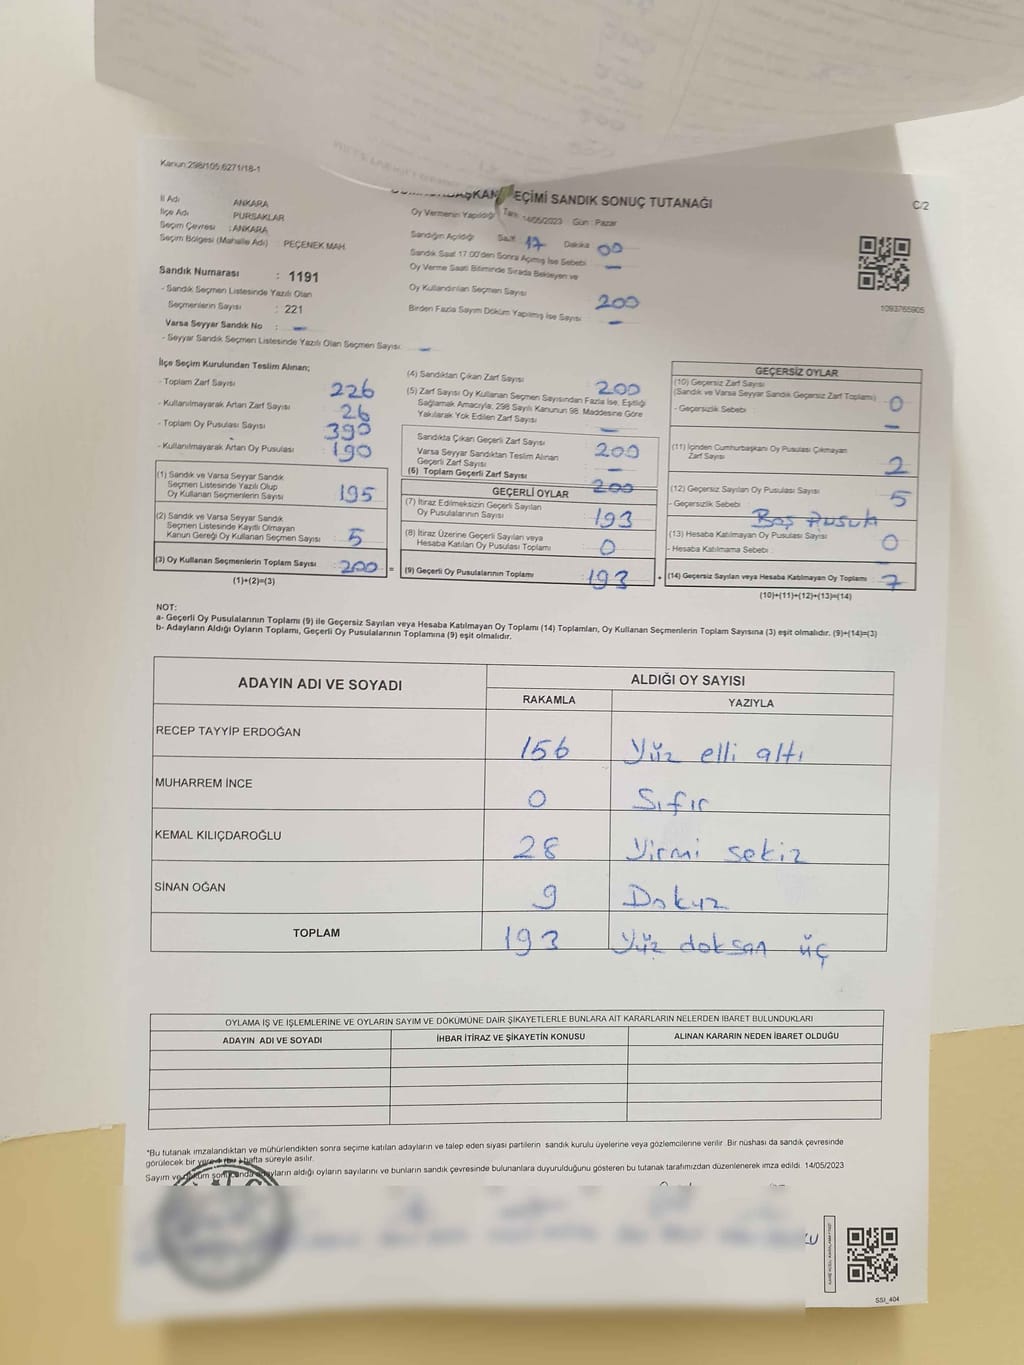 Kanun:298/105;6271/18-1
EÇİMİ SANDIK SONUÇ TUTANAĞI
C/2
İl Adı ANKARA
İlçe Adı PURSAKLAR
Seçim Çevresi : ANKARA
Seçim Bölgesi (Mahalle Adı) PEÇENEK MAH.
Oy Vermenin Yapıldığı Tarih 14/05/2023 Gün : Pazar
Sandığın Açıldığı Saat 17 Dakika 00
Sandık Saat 17.00'den Sonra Açılmış İse Sebebi –
Oy Verme Saati Bitiminde Sırada Bekleyen ve
Oy Kullandırılan Seçmen Sayısı 200
Birden Fazla Sayım Döküm Yapılmış İse Sayısı –
1093765905
Sandık Numarası : 1191
- Sandık Seçmen Listesinde Yazılı Olan
Seçmenlerin Sayısı : 221
Varsa Seyyar Sandık No : –
- Seyyar Sandık Seçmen Listesinde Yazılı Olan Seçmen Sayısı: –
İlçe Seçim Kurulundan Teslim Alınan;
- Toplam Zarf Sayısı 226
- Kullanılmayarak Artan Zarf Sayısı 26
- Toplam Oy Pusulası Sayısı 390
- Kullanılmayarak Artan Oy Pusulası 190
(1) Sandık ve Varsa Seyyar Sandık
Seçmen Listesinde Yazılı Olup
Oy Kullanan Seçmenlerin Sayısı 195
(2) Sandık ve Varsa Seyyar Sandık
Seçmen Listesinde Kayıtlı Olmayan
Kanun Gereği Oy Kullanan Seçmen Sayısı 5
(3) Oy Kullanan Seçmenlerin Toplam Sayısı : 200 =
(1)+(2)=(3)
(4) Sandıktan Çıkan Zarf Sayısı 200
(5) Zarf Sayısı Oy Kullanan Seçmen Sayısından Fazla İse, Eşitliği
Sağlamak Amacıyla, 298 Sayılı Kanunun 98. Maddesine Göre
Yakılarak Yok Edilen Zarf Sayısı –
Sandıkta Çıkan Geçerli Zarf Sayısı 200
Varsa Seyyar Sandıktan Teslim Alınan
Geçerli Zarf Sayısı –
(6) Toplam Geçerli Zarf Sayısı 200
GEÇERLİ OYLAR
(7) İtiraz Edilmeksizin Geçerli Sayılan
Oy Pusulalarının Sayısı 193
(8) İtiraz Üzerine Geçerli Sayılan veya
Hesaba Katılan Oy Pusulası Toplamı 0
(9) Geçerli Oy Pusulalarının Toplamı 193 +
GEÇERSİZ OYLAR
(10) Geçersiz Zarf Sayısı
(Sandık ve Varsa Seyyar Sandık Geçersiz Zarf Toplamı) 0
- Geçersizlik Sebebi : –
(11) İçinden Cumhurbaşkanı Oy Pusulası Çıkmayan
Zarf Sayısı 2
(12) Geçersiz Sayılan Oy Pusulası Sayısı 5
- Geçersizlik Sebebi : Boş Pusula
(13) Hesaba Katılmayan Oy Pusulası Sayısı 0
- Hesaba Katılmama Sebebi : –
(14) Geçersiz Sayılan veya Hesaba Katılmayan Oy Toplamı 7
(10)+(11)+(12)+(13)=(14)
NOT:
a- Geçerli Oy Pusulalarının Toplamı (9) ile Geçersiz Sayılan veya Hesaba Katılmayan Oy Toplamı (14) Toplamları, Oy Kullanan Seçmenlerin Toplam Sayısına (3) eşit olmalıdır. (9)+(14)=(3)
b- Adayların Aldığı Oyların Toplamı, Geçerli Oy Pusulalarının Toplamına (9) eşit olmalıdır.
ADAYIN ADI VE SOYADI ALDIĞI OY SAYISI
RAKAMLA YAZIYLA
RECEP TAYYİP ERDOĞAN 156 Yüz elli altı
MUHARREM İNCE 0 Sıfır
KEMAL KILIÇDAROĞLU 28 Yirmi sekiz
SİNAN OĞAN 9 Dokuz
TOPLAM 193 Yüz doksan üç
OYLAMA İŞ VE İŞLEMLERİNE VE OYLARIN SAYIM VE DÖKÜMÜNE DAİR ŞİKAYETLERLE BUNLARA AİT KARARLARIN NELERDEN İBARET BULUNDUKLARI
ADAYIN ADI VE SOYADI İHBAR İTİRAZ VE ŞİKAYETİN KONUSU ALINAN KARARIN NEDEN İBARET OLDUĞU
*Bu tutanak imzalandıktan ve mühürlendikten sonra seçime katılan adayların ve talep eden siyasi partilerin sandık kurulu üyelerine veya gözlemcilerine verilir. Bir nüshası da sandık çevresinde
görülecek bir yere 1 (bir) hafta süreyle asılır.
Sayım ve döküm sonucunda adayların aldığı oyların sayılarını ve bunların sandık çevresinde bulunanlara duyurulduğunu gösteren bu tutanak tarafımızdan düzenlenerek imza edildi. 14/05/2023
SSI_404